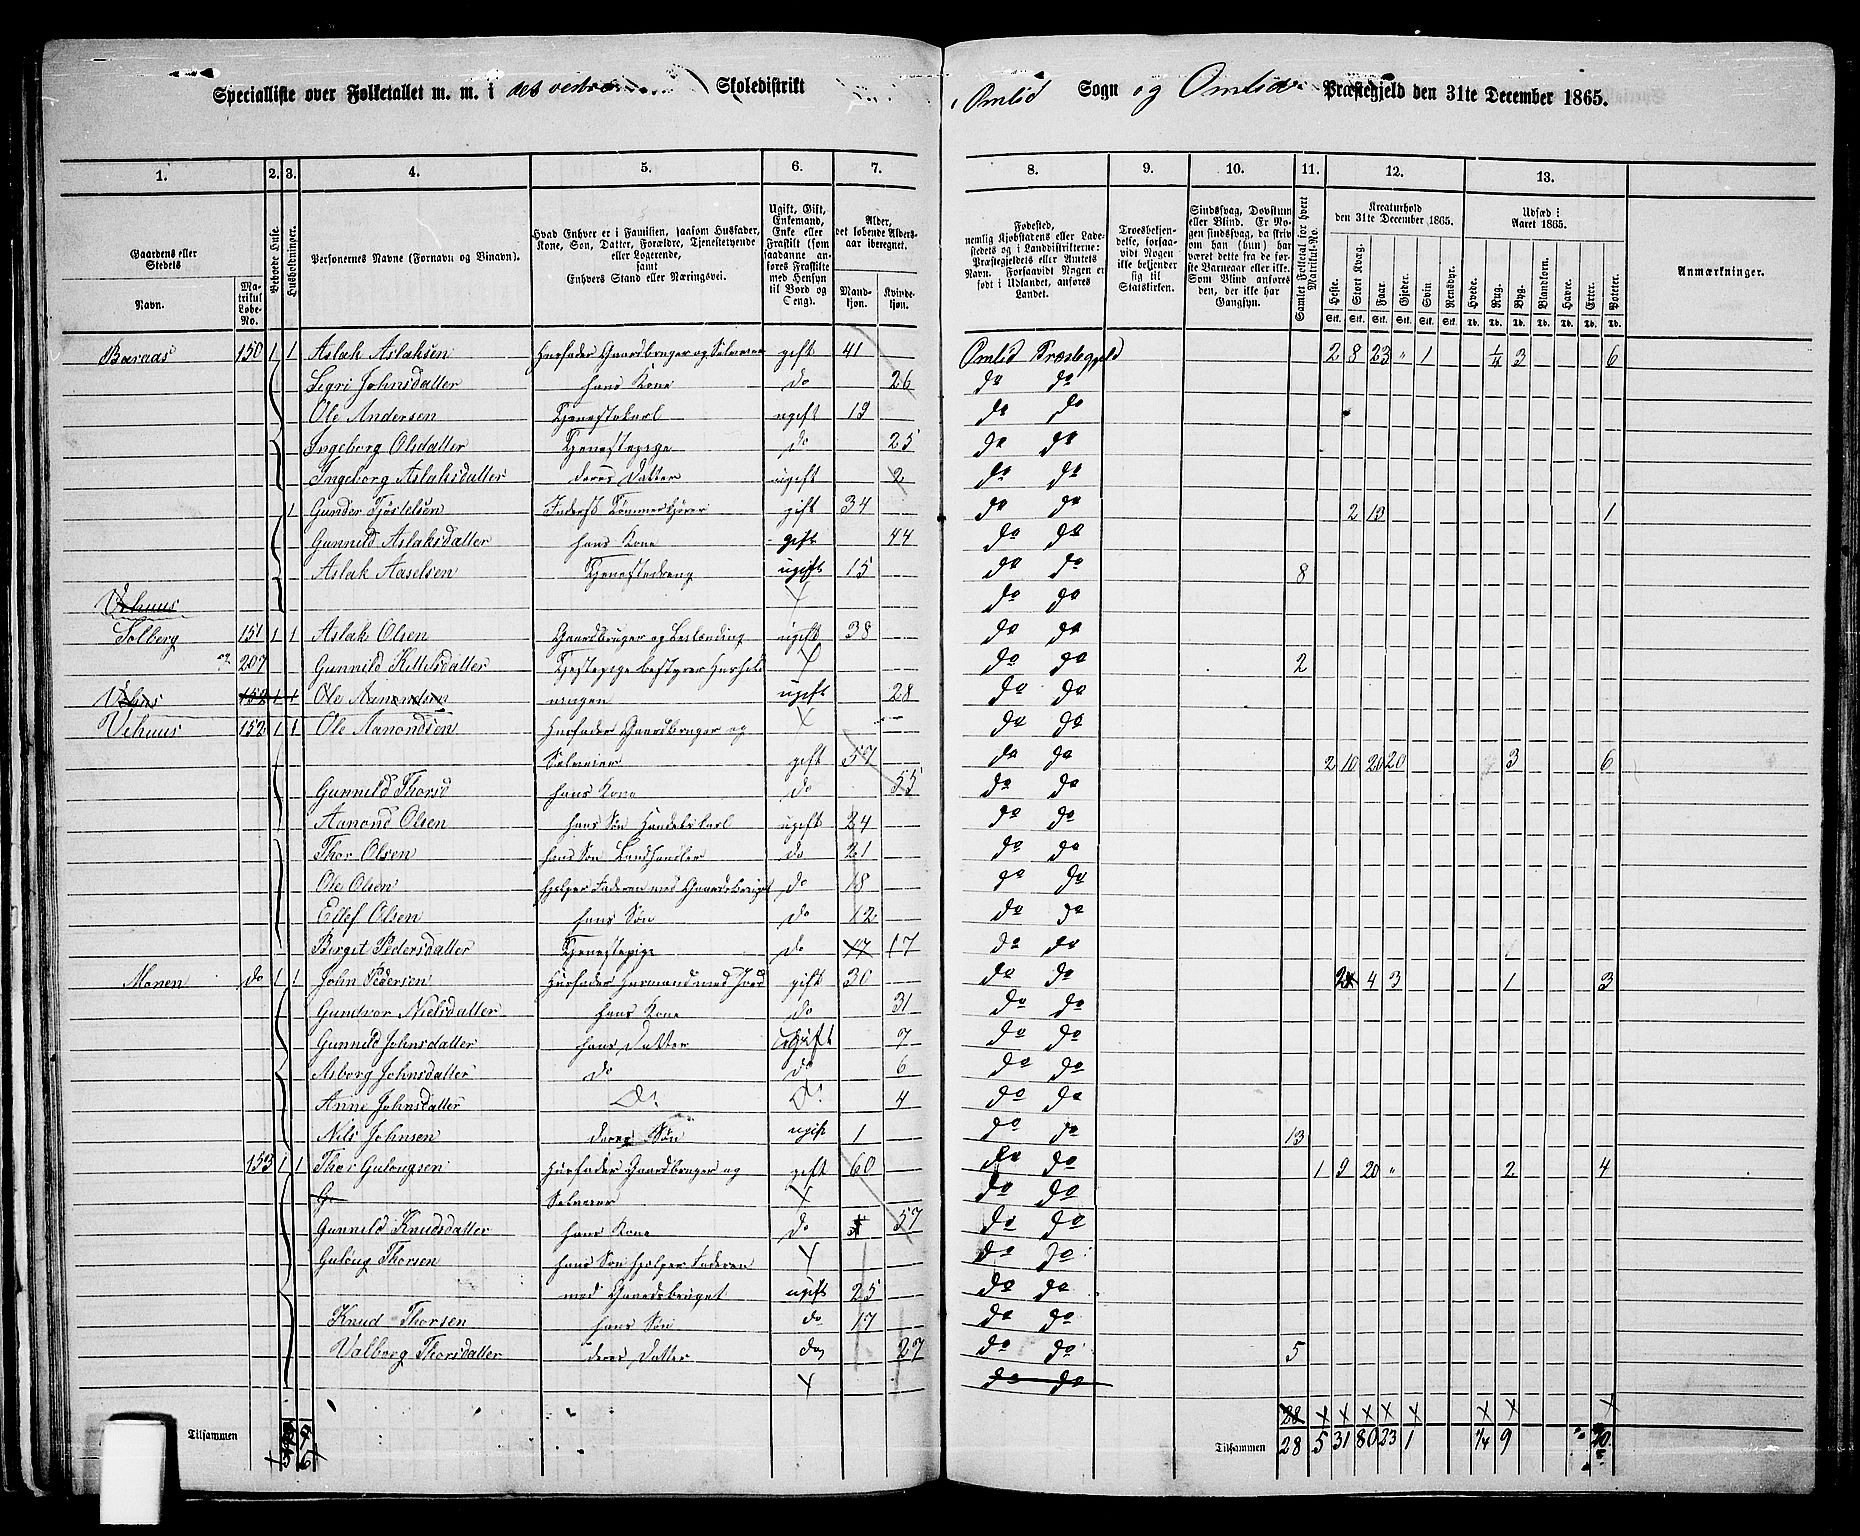 Specialliste over Folketallet m. m. i det vestre Skoledistrikt
Omlid Sogn og Omlids Præstegjeld den 31te December 1865.
1. 2. 3. 4. 5. 6. 7. 8. 9. 10. 11. 12. 13.
Gaardens eller Stedets
Navn.
Matrikul Løbe-No.
Beboede Huse.
Husholdninger.
Personernes Navne (Fornavn og Tilnavn).
Hvad Enhver er i Familien, saasom Husfader, Kone, Søn, Datter, Forældre, Tjenestetyende eller Logerende, samt Enhvers Stand eller Næringsvei.
Ugift, Gift, Enkemand, Enke eller Fraskilt (som saadanne anføres Fraskilte med Hensyn til Bord og Seng).
Alder, det løbende Aldersaar iberegnet.
Mandkjøn. Kvindekjøn.
Fødested, nemlig Kjøbstadens eller Ladestedets og i Landdistrikterne: Præstegjeldets eller Amtets Navn. Forsaavidt Nogen er født i Udlandet, anføres Landet.
Troesbekjendelse, forsaavidt Nogen ikke bekjender sig til Statskirken.
Sindssvag, Døvstum eller Blind. Er Nogen sindssvag, da skrives han (hun) har været dette fra de første Barneaar eller ikke. Som Blind anføres den, der ikke har Gangsyn.
Samlet Folketal for hvert Matrikul-No.
Kreaturhold den 31te December 1865.
Heste. Stort Kvæg. Faar. Gjeder. Svin Rensdyr.
Udsæd i Aaret 1865.
Hvede. Rug. Byg. Blandkorn. Havre. Erter. Poteter.
Anmærkninger.
Baraas 150 1 1 Aslak Aslaksen Husfader Gaardbruger og Selveier gift 41 Omlid Præstegjeld 2 8 23 " 1 1/4 3 6
Segri Johnsdatter hans Kone do 26 do do
Ole Andersen Tjenestekarl ugift 19 do do
Ingeborg Olsdatter Tjenestepige do 25 do do
Ingeborg Aslaksdatter deres Datter ugift 2 do do
1 Gunder Tjøstelsen Inderst Tømmerkjører gift 34 do do 2 10 1
Gunnild Aslaksdatter hans Kone gift 44 do do
Aslak Aaselsen Tjenestedreng ugift 15 do do 8
Vehuus do do
Solberg 151 1 1 Aslak Olsen Gaardbruger og ugift 38 do do
og 207 Gunnild Kittelsdatter bestyrer Hushold do do 2
152 1 1 Ole Aamondsen ningen ugift 28 do do
Vehuus 152 1 1 Ole Aanondsen Husfader Gaardbruger og do do
Selveier gift 57 do do 2 10 20 20 3 6
Gunnild Thorsd hans Kone do 55 do do
Aanond Olsen hans Søn Handelskarl ugift 24 do do
Thor Olsen hans Søn Landhandler do 21 do do
Ole Olsen hjelper Faderen med Gaardsbruget do 18 do do
Eilef Olsen hans Søn do 12 do do
Birgit Pedersdatter Tjenestepige do 17 17 do do
Monen do 1 1 John Pedersen Husfader Husmand med Jord gift 30 do do 2 4 3 1 3
Gundvor Nielsdatter hans Kone do 31 do do
Gunnild Johnsdatter hans Datter Ugift 7 do do
Asborg Johnsdatter do do 6 do do
Anne Johnsdatter Do Do 4 do do
Nils Johnsen deres Søn ugift 1 do do 13
153 1 1 Thor Gulougsen Husfader Gaardbruger og gift 60 do do 1 9 20 " 2 4
G. Selveier do do
Gunnild Knudsdatter hans Kone do 57 do do
Guloug Thorsen hans Søn hjelper Faderen do do
med Gaardsbruget ugift 25 do do
Knud Thorsen hans Søn do 17 do do
Valborg Thorsdatter deres Datter do 27 do do 5
do do
28
Tilsammen Tilsammen 28 5 31 80 23 1 1/4 9 20